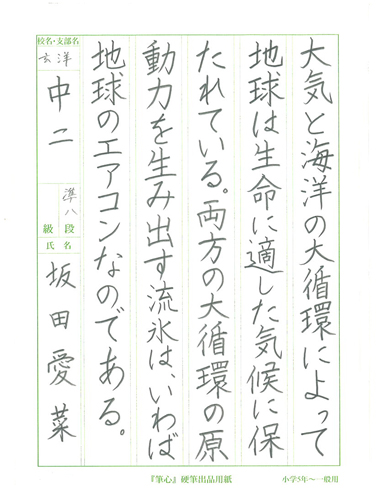 大気と海洋の大循環によって
地球は生命に適した気候に保
たれている。両方の大循環の原
動力を生み出す流氷は、いわば
地球のエアコンなのである。
校名・支部名
玄洋
中二
準八
段
級
氏名
坂田愛菜
『筆心』硬筆出品用紙
小学5年〜一般用